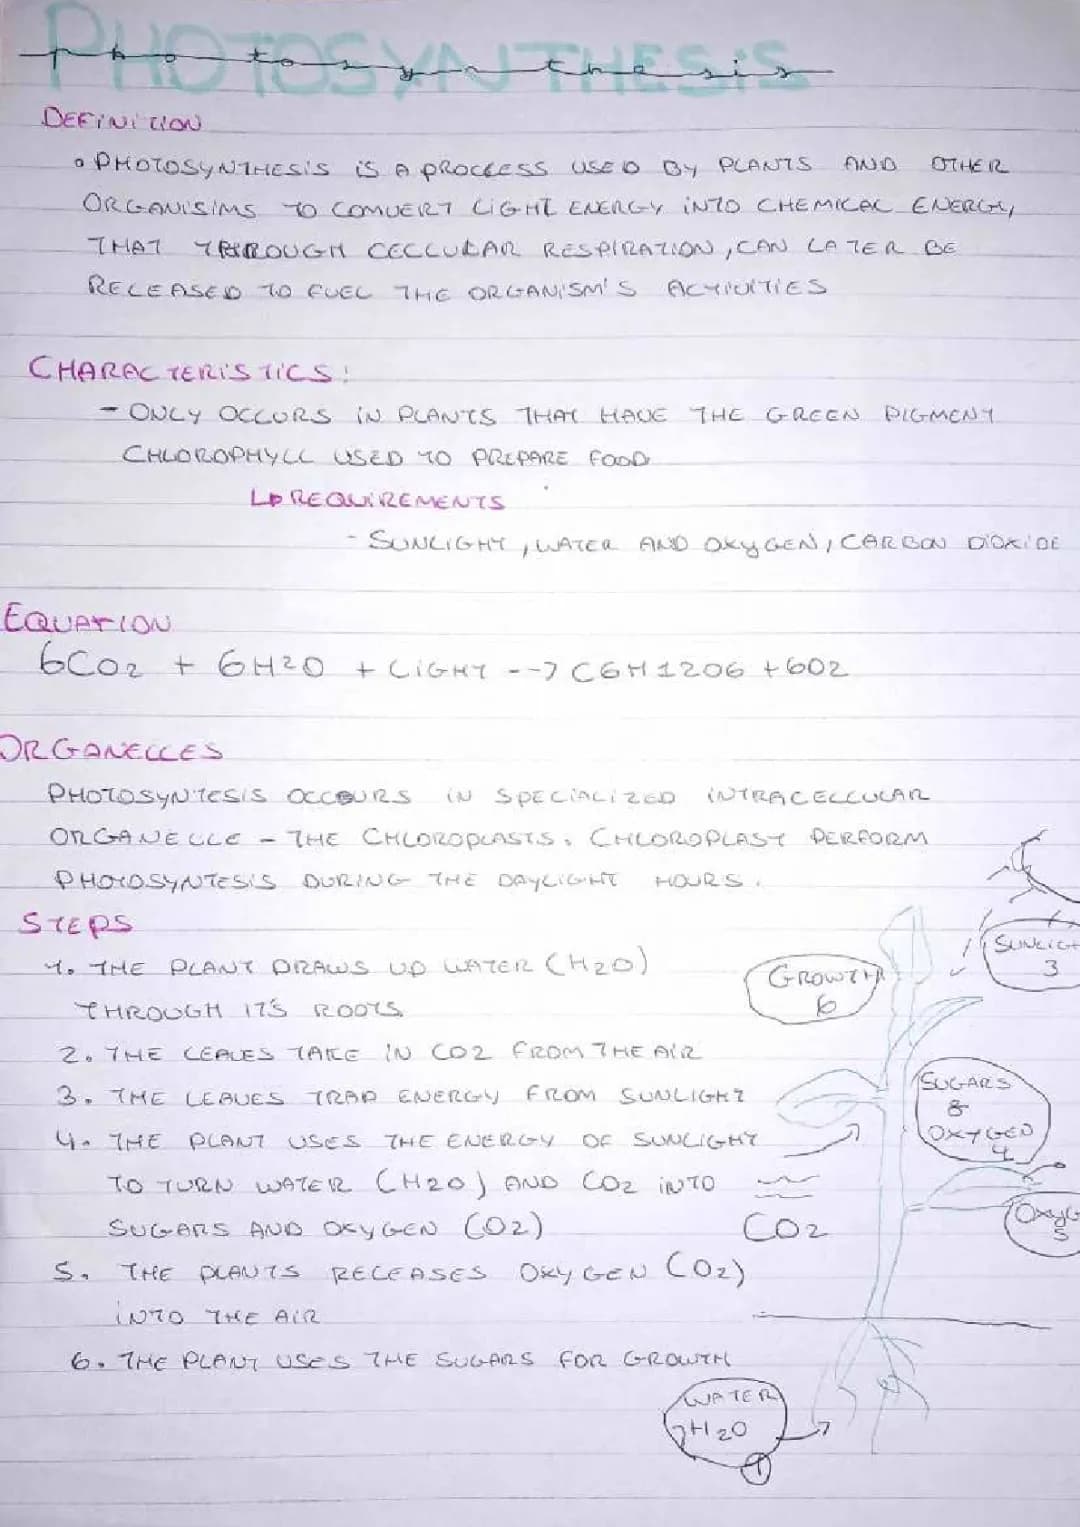 PHOTOSYNTHESIS
photosynthesis
DEFINITION
• PHOTOSYNTHESIS IS A PROCESS USED BY PLANTS AND OTHER
ORGANISIMS TO CONVERT LIGHT ENERGY INTO CHEMICAL ENERGY,
THAT THROUGH CELLULAR RESPIRATION, CAN LATER BE
RELEASED TO FUEL THE ORGANISM'S ACTIVITIES
CHARACTERISTICS:
- ONLY OCCURS IN PLANTS THAT HAVE THE GREEN PIGMENT
CHLOROPHYLL USED TO PREPARE FOOD
REQUIREMENTS
- SUNLIGHT, WATER AND OXYGEN, CARBON DIOXIDE
EQUATION
6CO2 + 6H2O + LIGHT --> C6H12O6 + 6O2
ORGANELLES
PHOTOSYNTESIS OCCOURS IN SPECIALIZED INTRACELLULAR
ORGANELLE - THE CHLOROPLASTS. CHLOROPLAST PERFORM
PHOTOSYNTESIS DURING THE DAYLIGHT HOURS.
STEPS
1. THE PLANT DRAWS UP WATER (H2O)
THROUGH IT'S ROOTS
2. THE LEAVES TAKE IN CO2 FROM THE AIR
3. THE LEAVES TRAP ENERGY FROM SUNLIGHT
4. THE PLANT USES THE ENERGY OF SUNLIGHT
TO TURN WATER (H2O) AND CO2 INTO
SUGARS AND OXYGEN (O2)
5. THE PLANTS RELEASES OXYGEN (O2)
INTO THE AIR
6. THE PLANT USES THE SUGARS FOR GROWTH
SUNLIGH
3
GROWTH
6
SUGARS
&
OXYGEN
4
OXYG
5
CO2
WATER
H2O
1